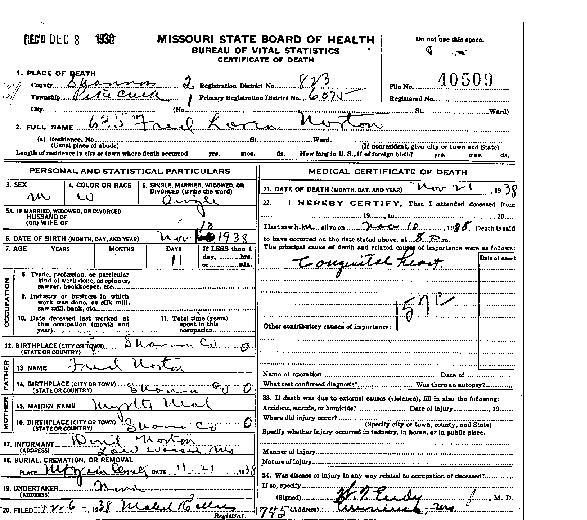 REC'D DEC 8 1938
MISSOURI STATE BOARD OF HEALTH
BUREAU OF VITAL STATISTICS
CERTIFICATE OF DEATH
Do not use this space.
1. PLACE OF DEATH
County Shannon 2 Registration District No. 823 File No. 40509
Township 1 Primary Registration District No. 6075 Registered No.
City (No. St. Ward)
2. FULL NAME Fred Norton
(a) Residence, No. St. Ward.
(Usual place of abode) (If nonresident, give city or town and State)
Length of residence in city or town where death occurred yrs. mos. ds. How long in U.S., if of foreign birth? yrs. mos. ds.
PERSONAL AND STATISTICAL PARTICULARS
3. SEX M
4. COLOR OR RACE W
5. SINGLE, MARRIED, WIDOWED, OR DIVORCED (write the word) Single
5A. IF MARRIED, WIDOWED, OR DIVORCED
HUSBAND OF
(OR) WIFE OF
6. DATE OF BIRTH (MONTH, DAY, AND YEAR) Nov 10 1938
7. AGE YEARS MONTHS DAYS 11 If LESS than 1 day, hrs. or min.
OCCUPATION
8. Trade, profession, or particular kind of work done, as spinner, sawyer, bookkeeper, etc.
9. Industry or business in which work was done, as silk mill, saw mill, bank, etc.
10. Date deceased last worked at this occupation (month and year)
11. Total time (years) spent in this occupation
12. BIRTHPLACE (CITY OR TOWN) Shannon Co 0
(STATE OR COUNTRY)
FATHER
13. NAME Fred Norton
14. BIRTHPLACE (CITY OR TOWN) Shannon Co 0
(STATE OR COUNTRY)
MOTHER
15. MAIDEN NAME Myrtle
16. BIRTHPLACE (CITY OR TOWN) Shannon Co 0
(STATE OR COUNTRY)
17. INFORMANT Norton
(ADDRESS) Mo
18. BURIAL, CREMATION, OR REMOVAL
PLACE DATE 11 21 1938
19. UNDERTAKER
(ADDRESS)
20. FILED 12-6 1938 Mabel
Registrar.
MEDICAL CERTIFICATE OF DEATH
21. DATE OF DEATH (MONTH, DAY, AND YEAR) Nov 21, 1938
22. I HEREBY CERTIFY, That I attended deceased from
19 to 19
I last saw h alive on Nov 10 1938 Death is said
to have occurred on the date stated above, at 8 m.
The principal cause of death and related causes of importance were as follows:
Date of onset
Congenital Heart
157
Other contributory causes of importance:
Name of operation Date of
What test confirmed diagnosis? Was there an autopsy?
23. If death was due to external causes (violence), fill in also the following:
Accident, suicide, or homicide? Date of injury 19
Where did injury occur?
(Specify city or town, county, and State)
Specify whether injury occurred in industry, in home, or in public place.
Manner of injury
Nature of injury
24. Was disease or injury in any way related to occupation of deceased?
If so, specify
(Signed) M. D.
775 (Address) Mo